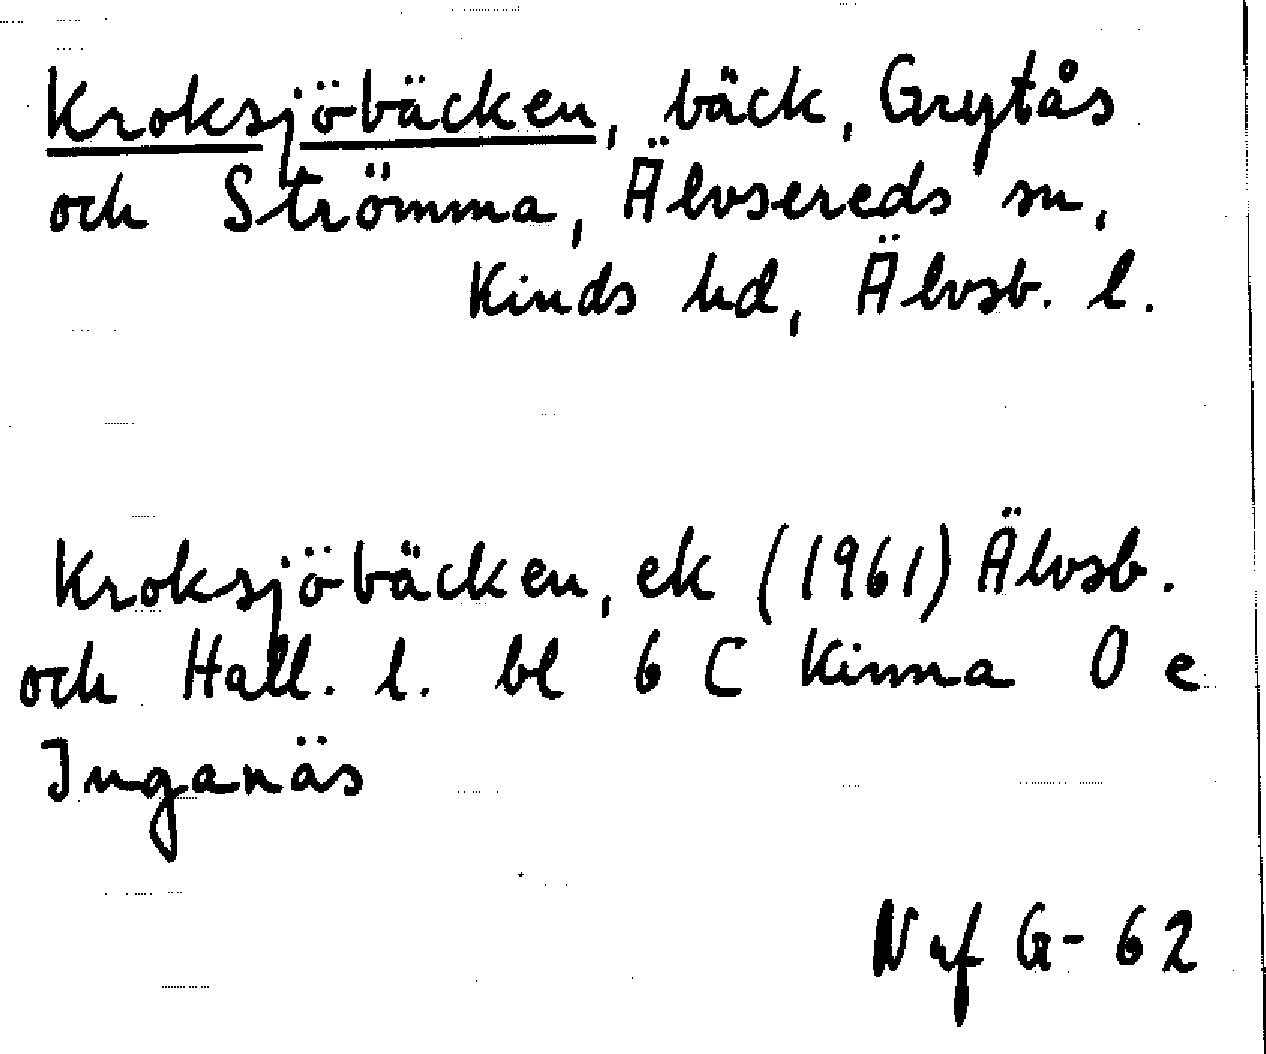 Kroksjöbäcken, bäck, Grytås
och Strömma, Älvsereds sn,
Kinds hd, Älvsb. l.
Kroksjöbäcken, ek (1961) Älvsb.
och Hall. l. bl 6 C Kinna O e
Inganäs
Naf G-62